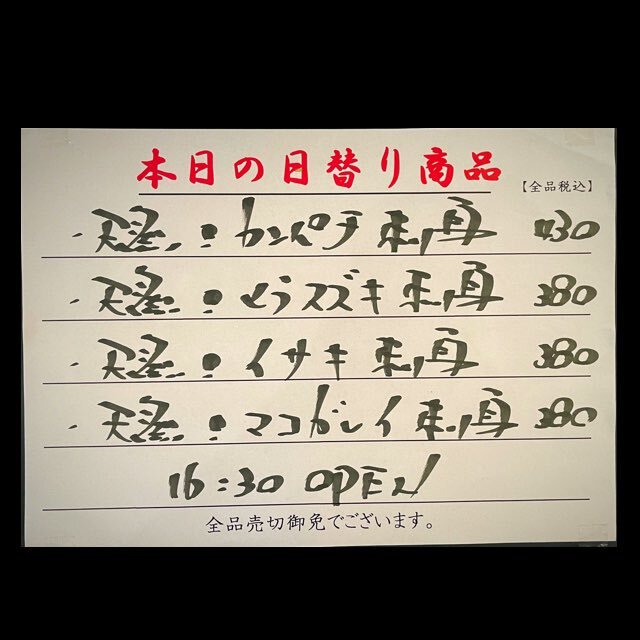 本日の日替り商品
【全品税込】
・天然!カンパチ刺身 430
・天然!ヒラスズキ刺身 380
・天然!イサキ刺身 380
・天然!マコガレイ刺身 380
16:30 OPEN!
全品売切御免でございます。